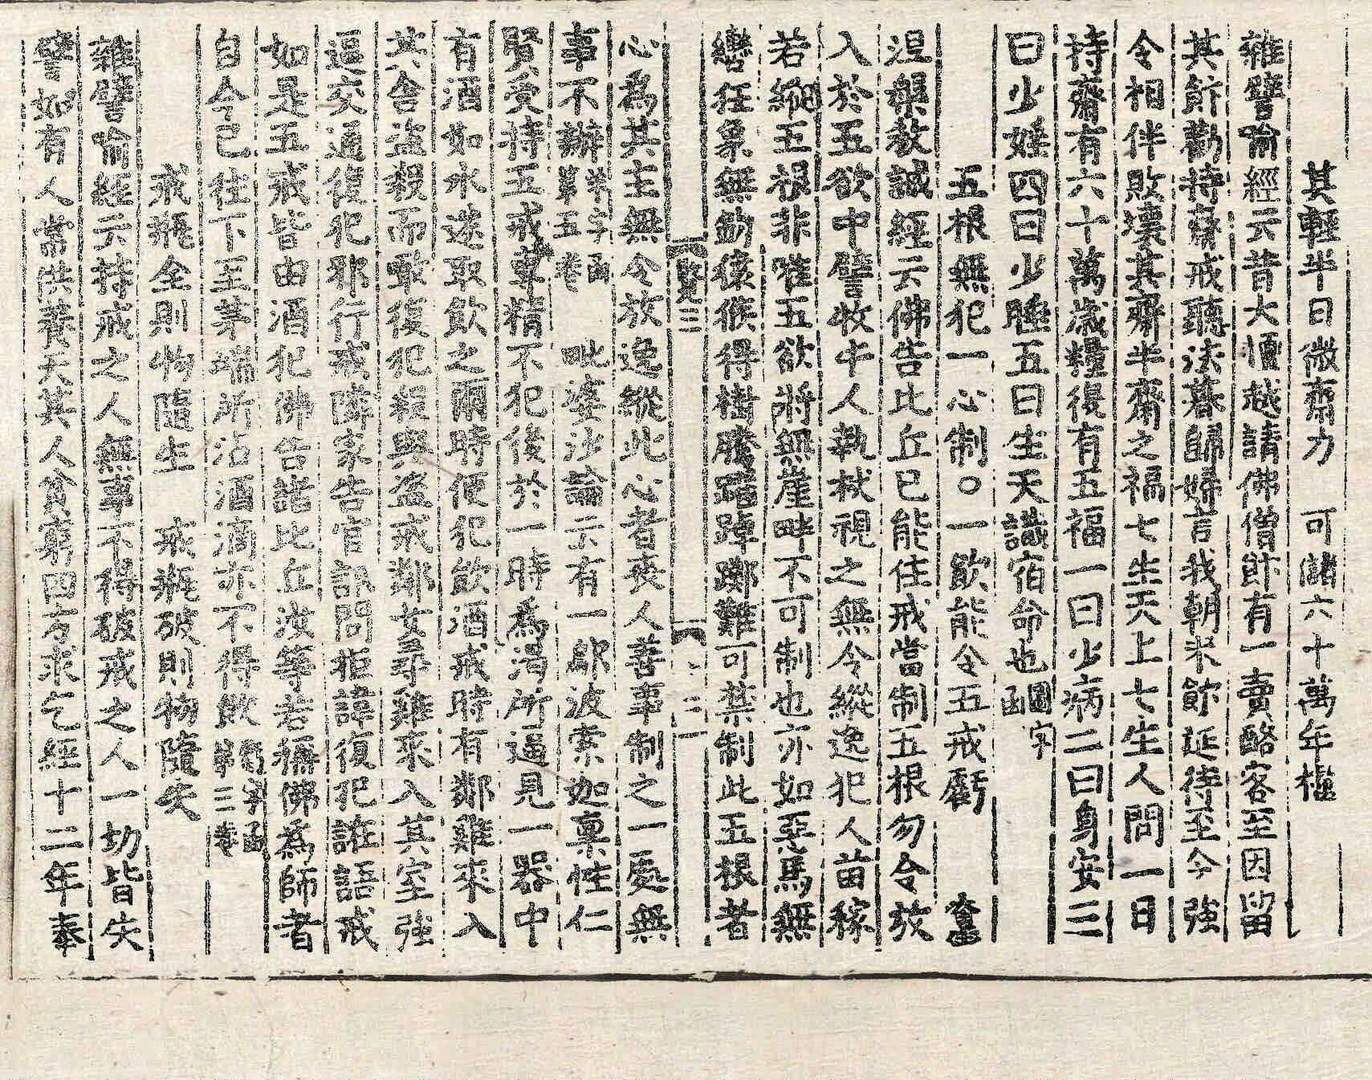 其輕半日微齋力　可儲六十萬年糧
雜譬喻經云昔大檀越請佛僧飰有一賣酪客至因留
其飰勸持齋戒聽法暮歸婦言我朝來飰延待至今強
令相伴敗壞其齋半齋之福七生天上七生人間一日
持齋有六十萬歲糧復有五福一曰少病二曰身安三
曰少婬四曰少睡五曰生天識宿命也圖字函
五根無犯一心制○一飲能令五戒虧
涅槃教誡經云佛告比丘已能住戒當制五根勿令放
入於五欲中譬牧牛人執杖視之無令縱逸犯人苗稼
若縱五根非唯五欲將無崖畔不可制也亦如惡馬無
轡狂象無鉤猿猴得樹騰踏踔躑難可禁制此五根者
覽三
心為其主無令放逸縱此心者喪人善事制之一處無
事不辦羊字函第五卷　毗婆沙論云有一鄔波索迦稟性仁
賢受持五戒專精不犯後於一時為渴所逼見一器中
有酒如水遂取飲之爾時便犯飲酒戒時有鄰雞來入
其舍盜殺而敢復犯殺與盜戒鄰女尋雞來入其室強
逼交通復犯邪行戒隣家告官訊問拒諱復犯誑語戒
如是五戒皆由酒犯佛告諸比丘汝等若稱佛為師者
自今已往下至茅端所沾酒滴亦不得飲字函三卷
戒瓶全則物隨生　戒瓶破則物隨失
雜譬喻經云持戒之人無事不得破戒之人一切皆失
譬如有人常供養天其人貧窮四方求乞經十二年奉